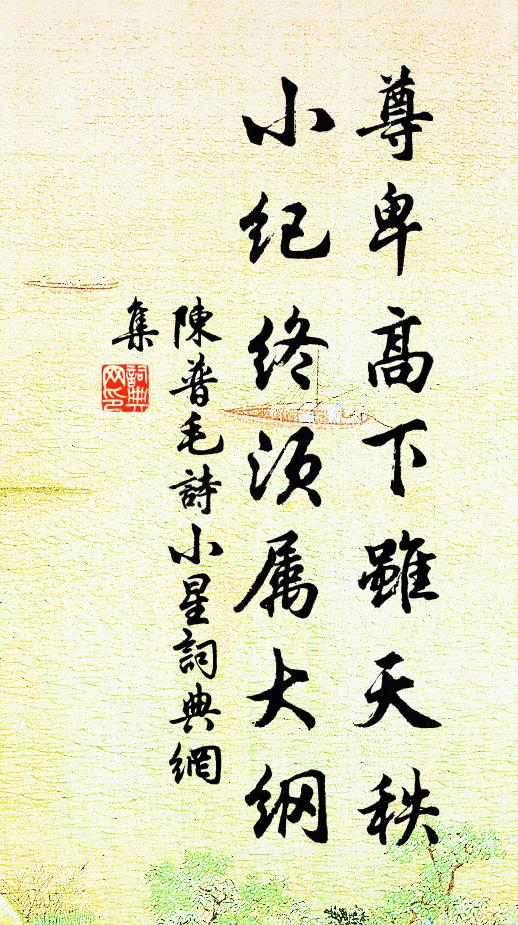 尊卑高下雖天秩
小纪终须属大纲
陳普毛詩小星詞典網
集
詞典
网印